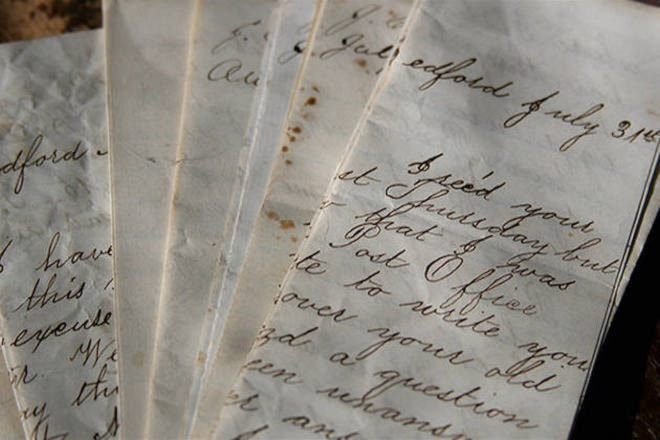 dford
have
this
excuse
r. We
ay thi
J.
Au
J.
J. Jul
edford July 31st
I rec'd your
st Thursday but
that I was
Post Office
te to write you
over your old
nd a question
een unansw
er and